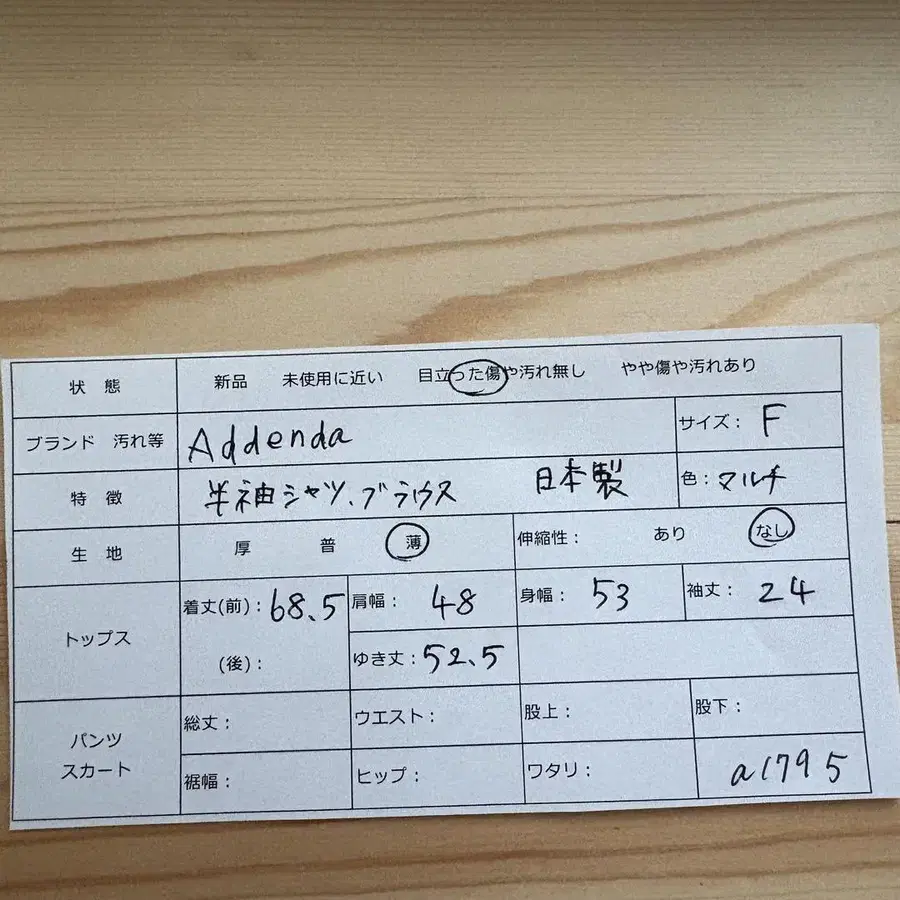 状 態 新品 未使用に近い 目立った傷や汚れ無し やや傷や汚れあり
ブランド 汚れ等 Addenda サイズ: F
特 徴 半袖シャツ、ブラウス 日本製 色: マルチ
生 地 厚 普 薄 伸縮性: あり なし
トップス
着丈(前): 68.5 肩幅: 48 身幅: 53 袖丈: 24
(後): ゆき丈: 52.5
パンツ
スカート
総丈: ウエスト: 股上: 股下:
裾幅: ヒップ: ワタリ: a1795